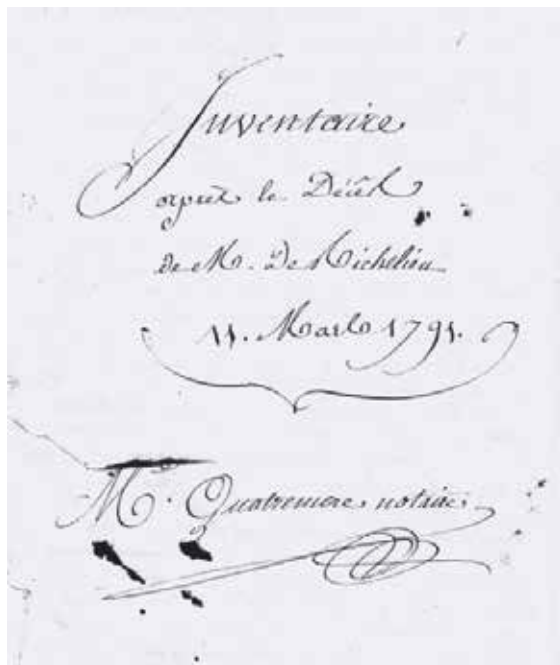 Inventaire
après le Décès
de M. De Richelieu
11. Mars 1791.
Me. Quatremere notaire